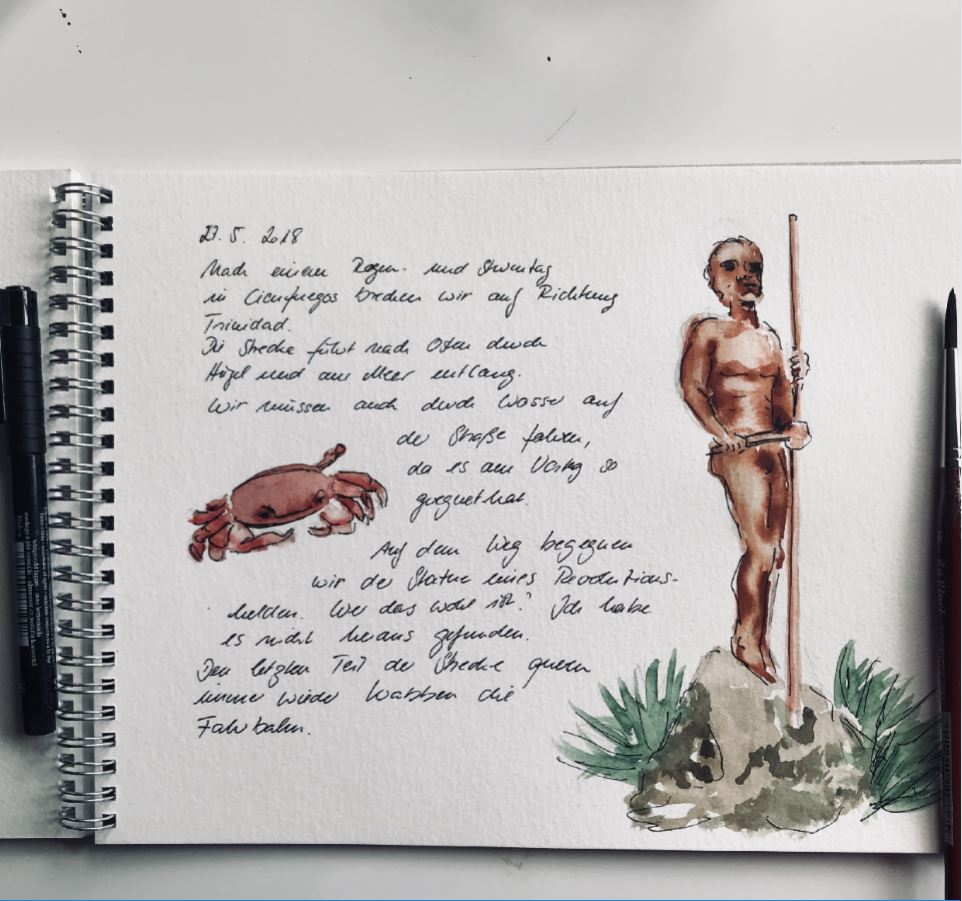 27. 5. 2018
Nach einem Regen- und Sturmtag
in Cienfuegos brechen wir auf Richtung
Trinidad.
Die Strecke führt nach Osten durch
Hügel und am Meer entlang.
Wir müssen auch durch Wasser auf
der Straße fahren,
da es am Vortag so
geregnet hat.
Auf dem Weg begegnen
wir der Statue eines Revolutions-
helden. Wer das wohl ist? Ich habe
es nicht heraus gefunden.
Den letzten Teil der Strecke queren
immer wieder Krabben die
Fahrbahn.